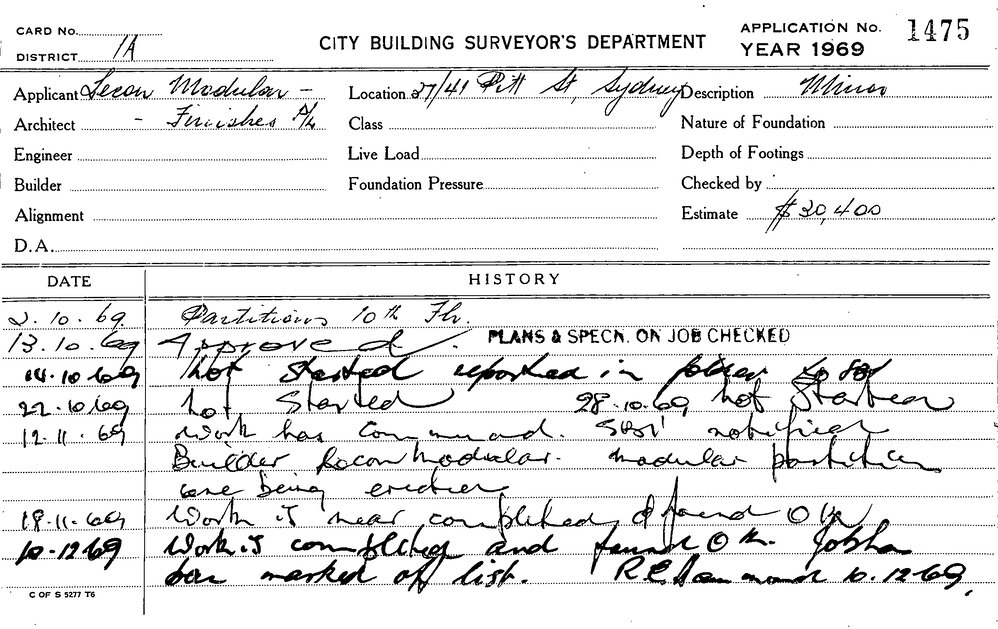 CARD No.
DISTRICT 1A
CITY BUILDING SURVEYOR'S DEPARTMENT
APPLICATION No. 1475
YEAR 1969
Applicant Secon Modular - Location 27/41 Pitt St, Sydney Description Minor
Architect - Finishes P/L Class Nature of Foundation
Engineer Live Load Depth of Footings
Builder Foundation Pressure Checked by
Alignment Estimate $30,400
D.A.
DATE HISTORY
2.10.69 Partitions 10th Flr.
13.10.69 Approved. PLANS & SPECN. ON JOB CHECKED
14.10.69 Not Started reported in
22.10.69 Not Started 28.10.69 Not Started
12.11.69 Work has Commenced. notified
Builder Modular. modular partition
are being erected
18.11.69 Work is near completed & found OK
10.12.69 Work is completed and found OK. Job has
been marked of list. R E Hammond 10.12.69.
C OF S 5277 T6